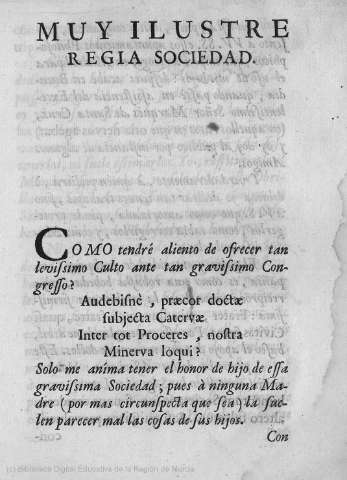 MUY ILUSTRE
REGIA SOCIEDAD.
COMO tendré aliento de ofrecer tan
levissimo Culto ante tan gravissimo Con-
gresso?
Audebisnè, præcor doctæ
subjecta Catervæ
Inter tot Proceres, nostra
Minerva loqui?
Solo me anima tener el honor de hijo de essa
gravissima Sociedad; pues à ninguna Ma-
dre (por mas circunspecta que sea) la sue-
len parecer mal las cosas de sus hijos.
Con
(c) Biblioteca Digital Educativa de la Región de Murcia